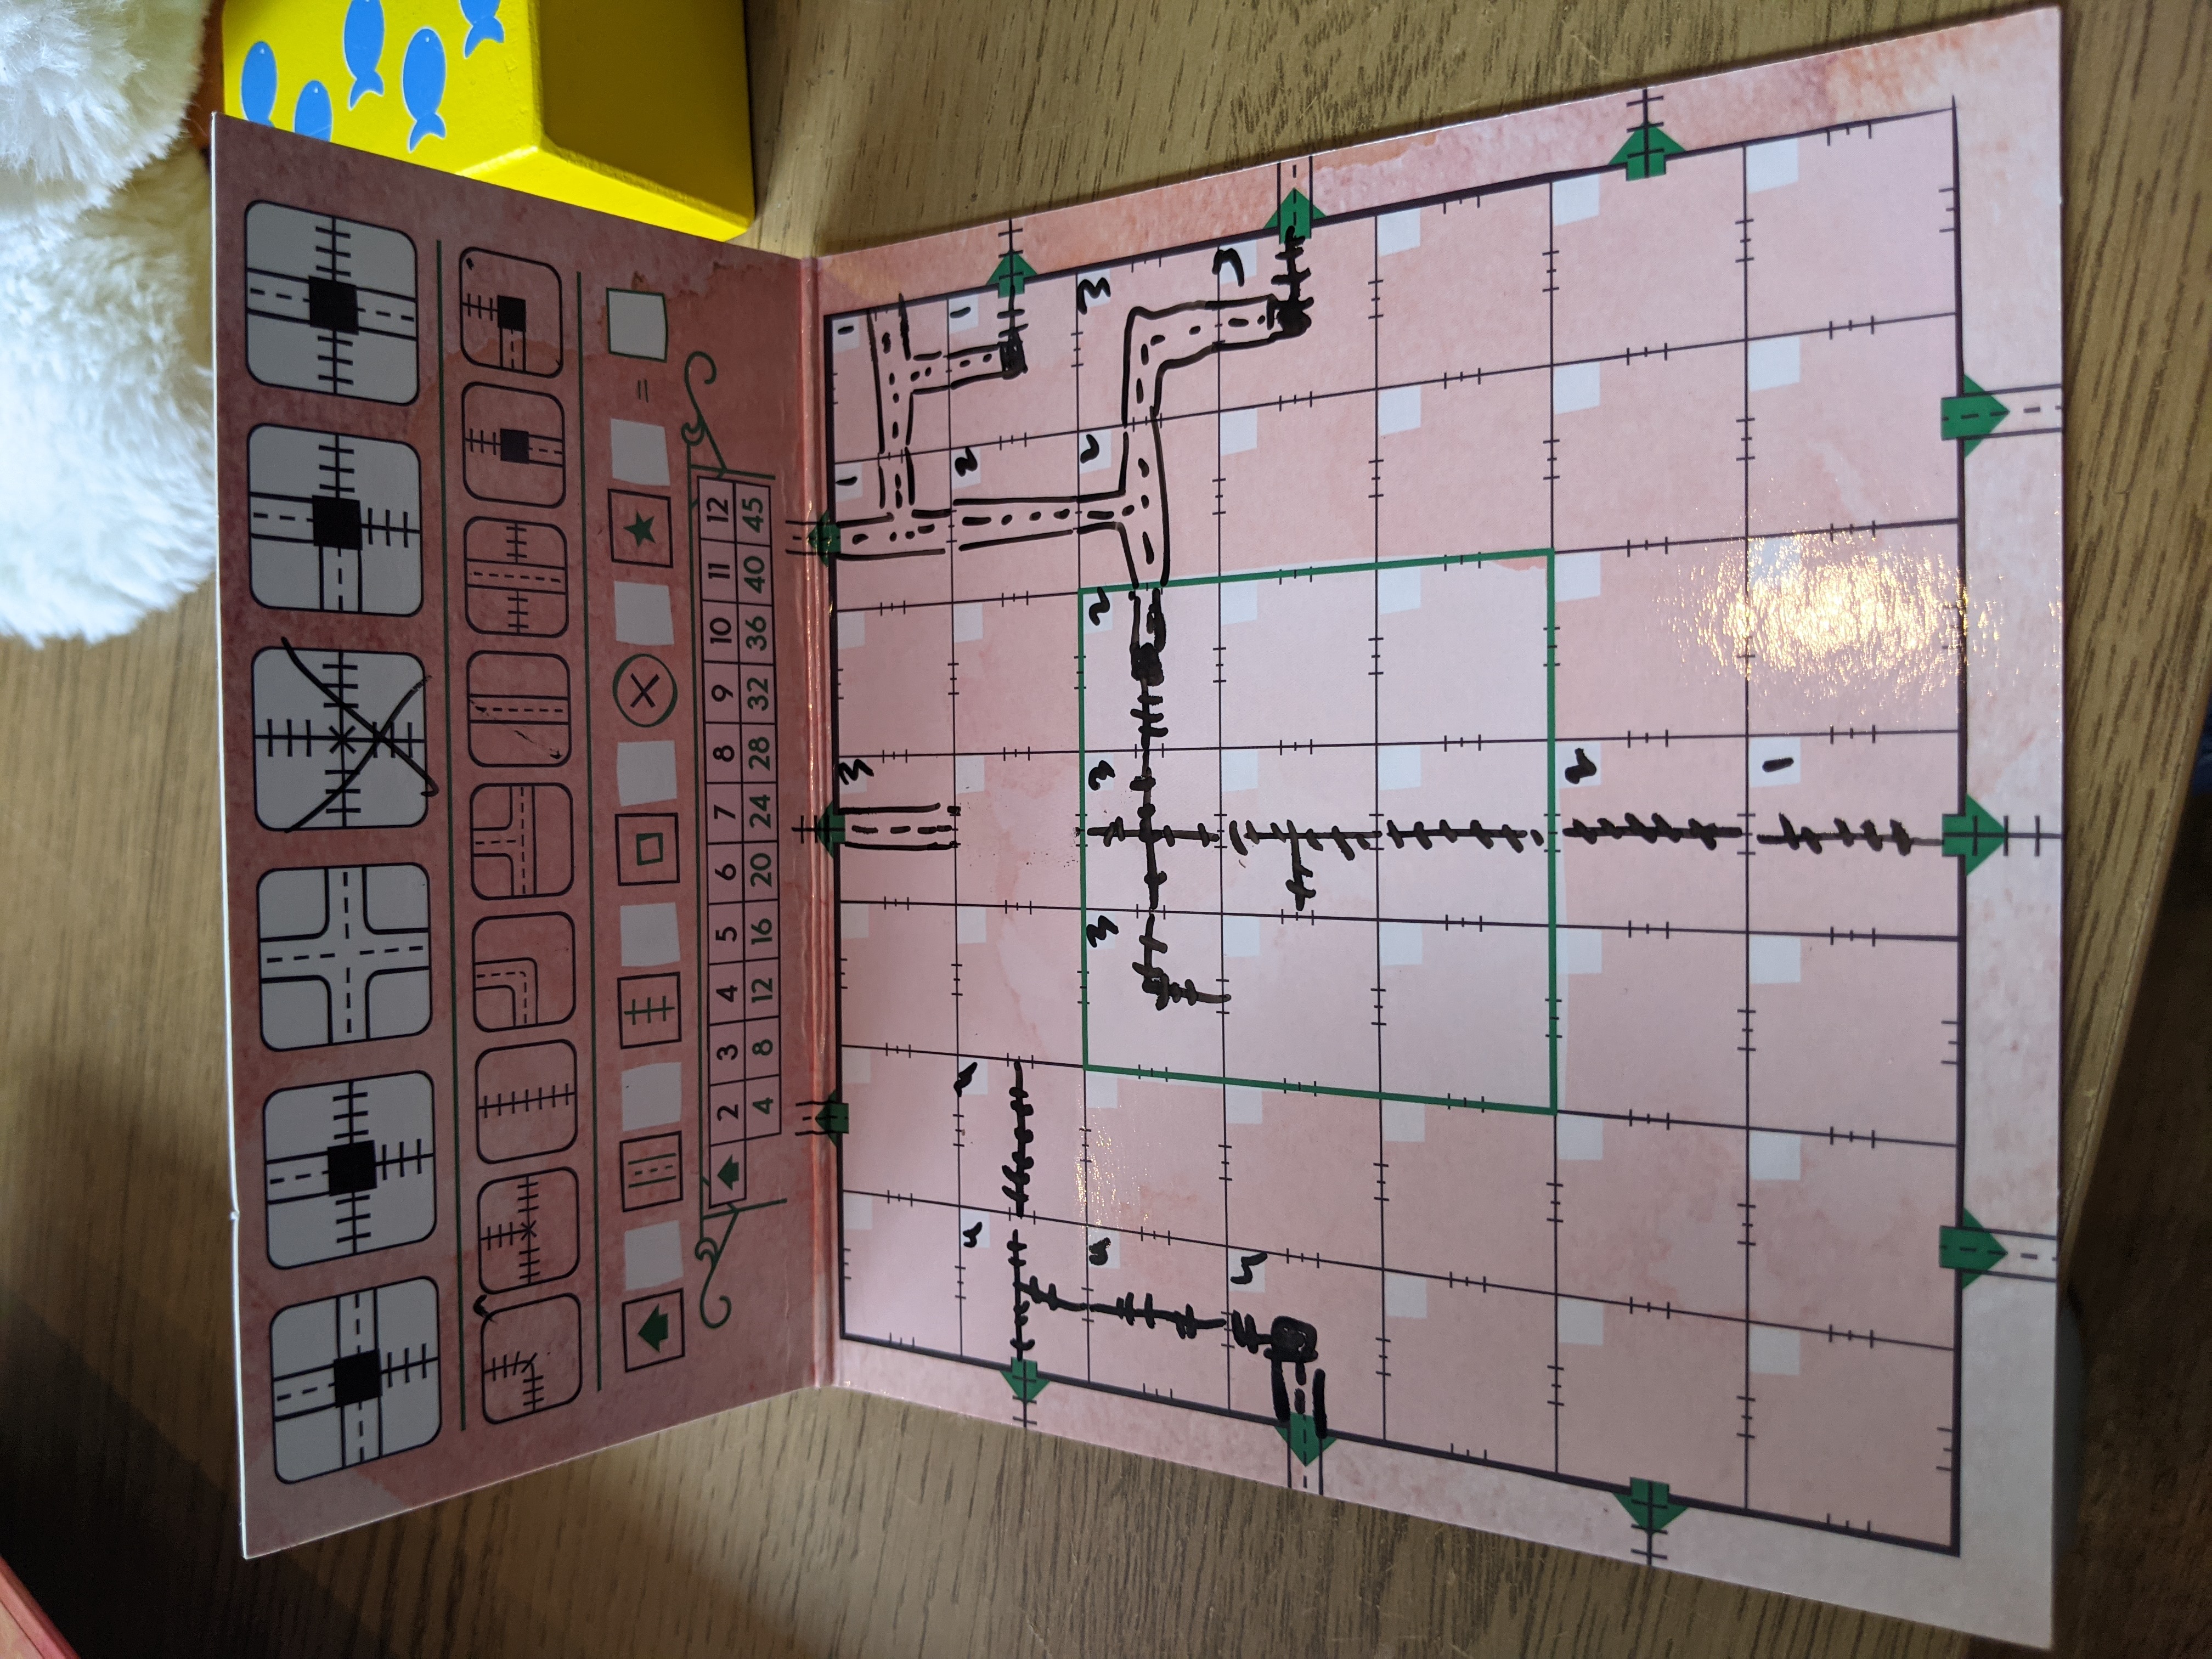 =
2 3 4 5 6 7 8 9 10 11 12
4 8 12 16 20 24 28 32 36 40 45
3 1 1
4 4 2 1
4 3 3 2 2 3
4 3
2
1